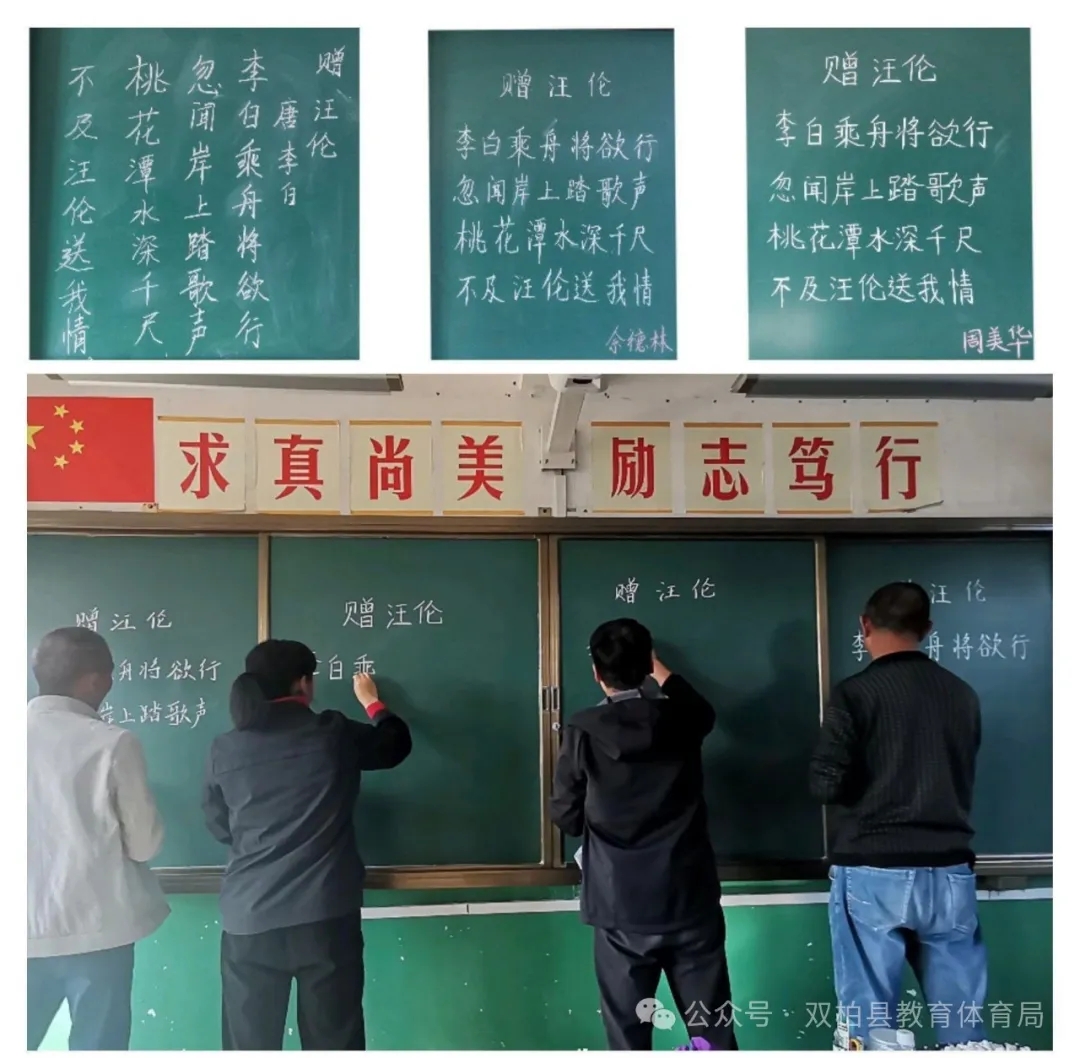 赠汪伦
唐李白
李白乘舟将欲行
忽闻岸上踏歌声
桃花潭水深千尺
不及汪伦送我情
赠汪伦
李白乘舟将欲行
忽闻岸上踏歌声
桃花潭水深千尺
不及汪伦送我情
余德林
赠汪伦
李白乘舟将欲行
忽闻岸上踏歌声
桃花潭水深千尺
不及汪伦送我情
周美华
求真尚美 励志笃行
赠汪伦
舟将欲行
岸上踏歌声
赠汪伦
李白乘
赠汪伦
汪伦
李 舟将欲行
公众号·双柏县教育体育局